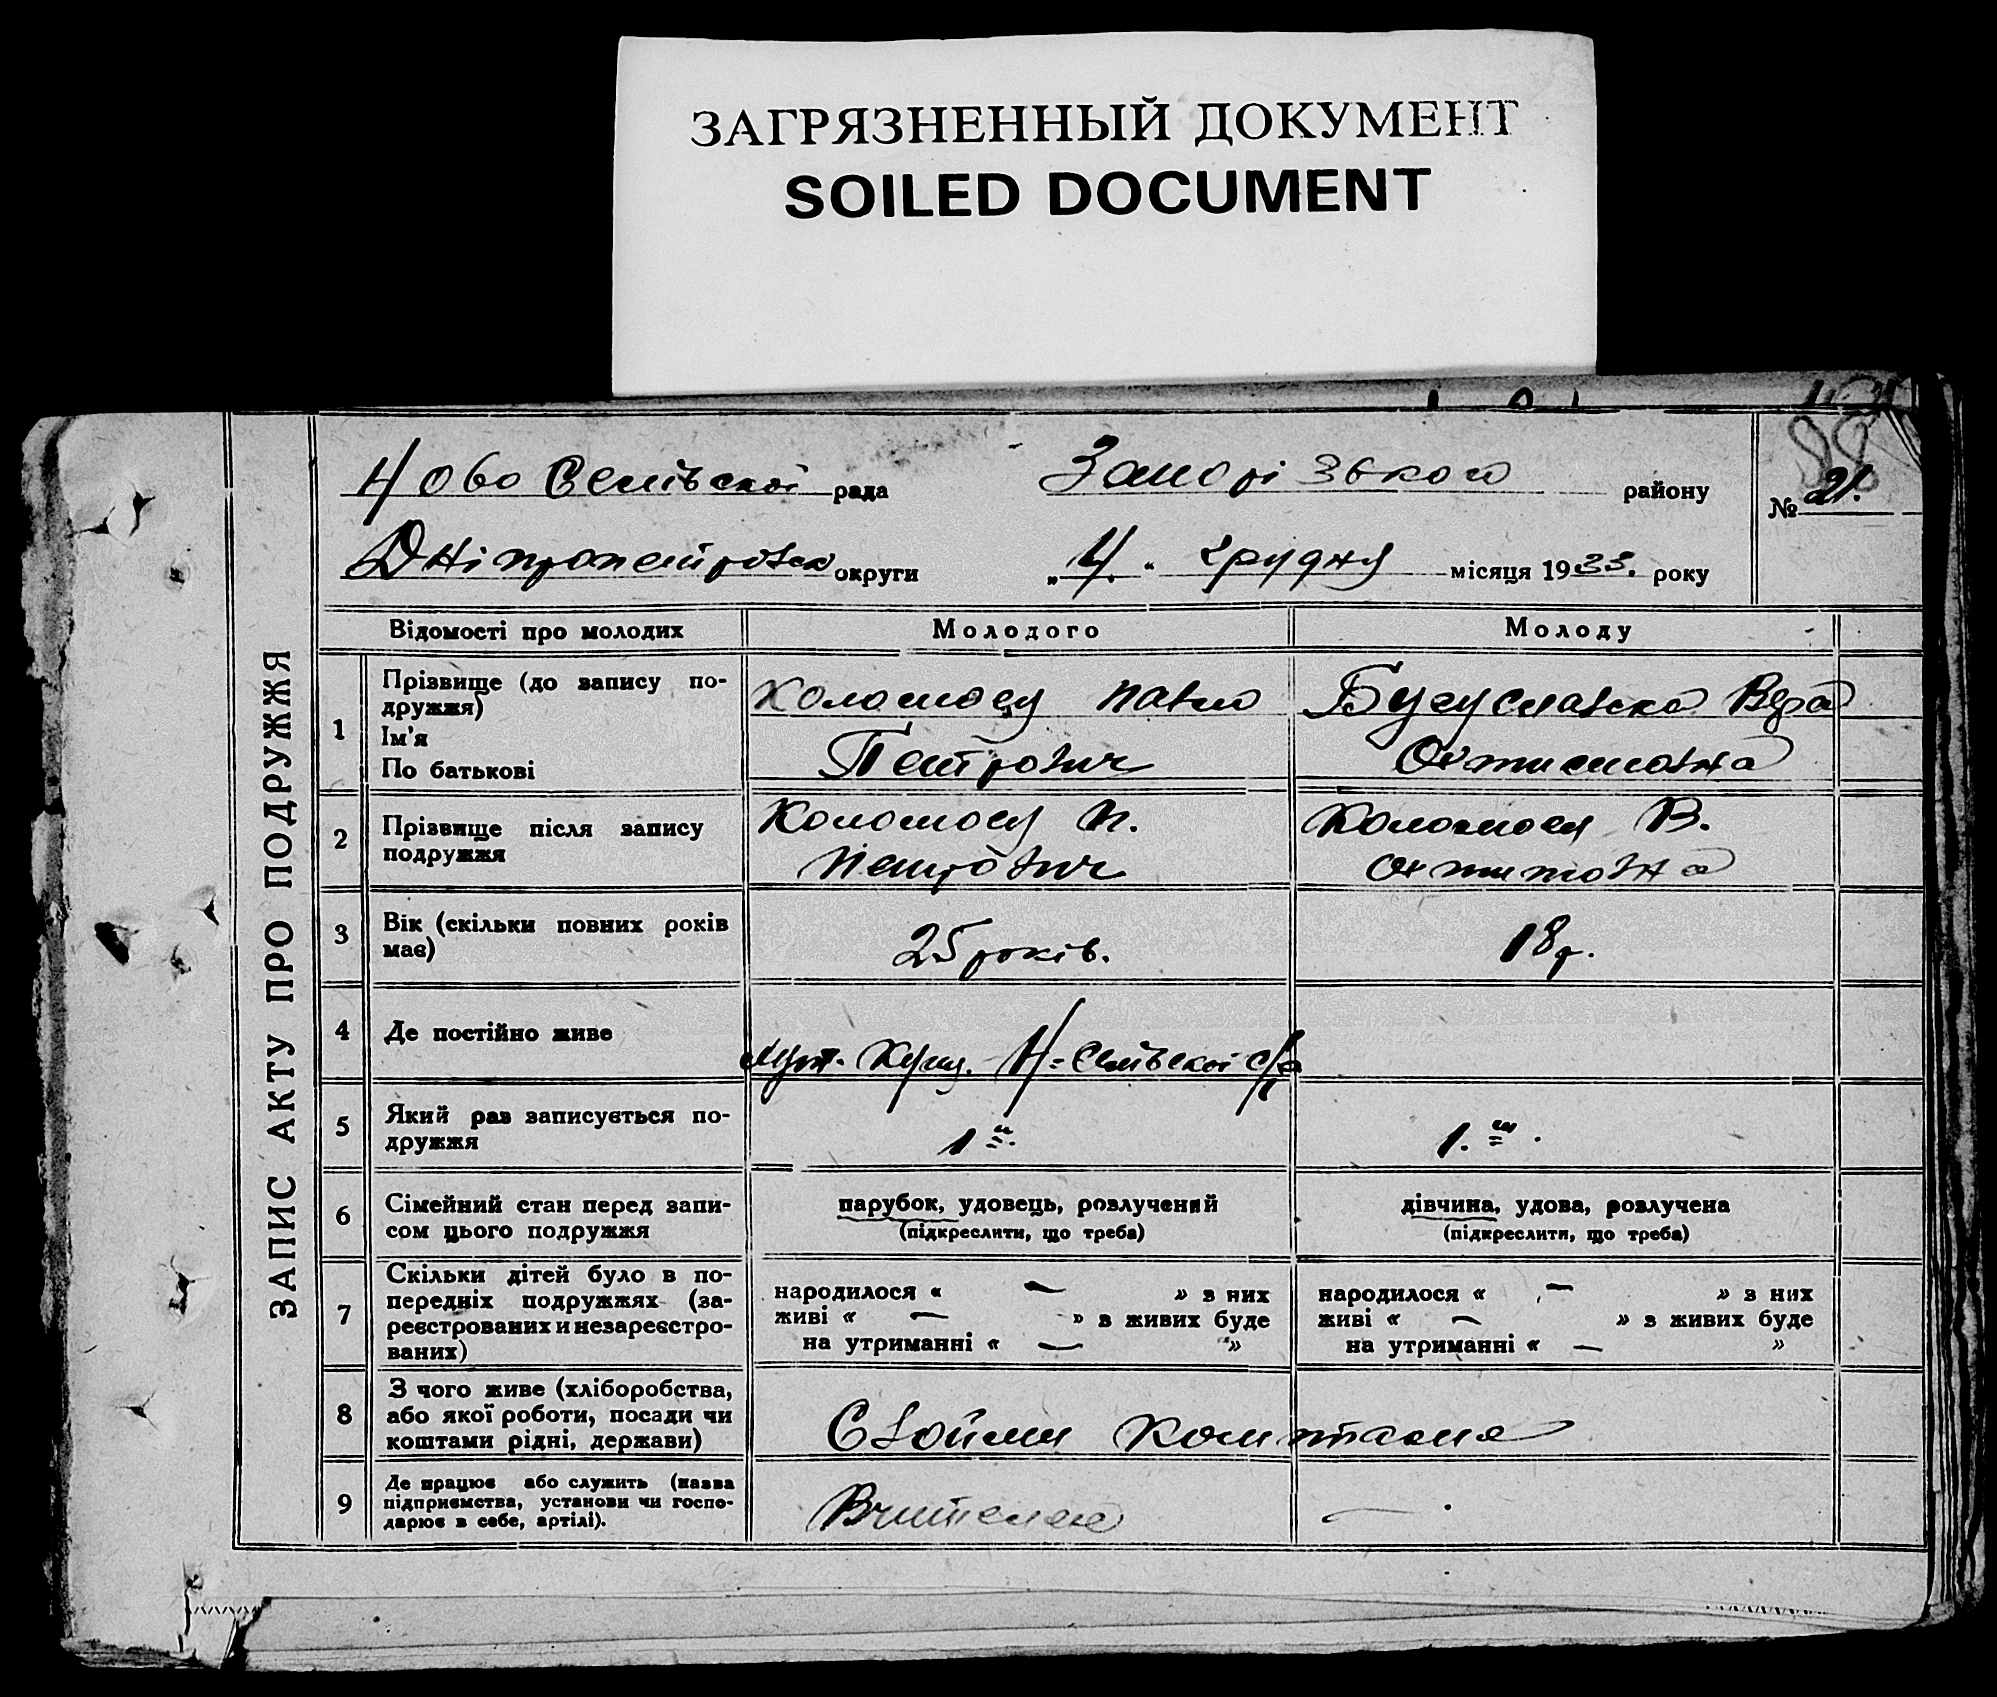 ЗАГРЯЗНЕННЫЙ ДОКУМЕНТ
SOILED DOCUMENT
ЗАПИС АКТУ ПРО ПОДРУЖЖЯ
Ново Селівської рада Запорізького району № 21.
Дніпропетровськ округи „4.“ грудня місяця 1933. року
Відомості про молодих Молодого Молоду
1 Прізвище (до запису по-
дружжя)
Ім'я
По батькові
Коломоец Павло
Петрович
Бугуславська Вера
2 Прізвище після запису
подружжя
Коломоец П.
Петрович
Коломоец В.
3 Вік (скільки повних років
має)
25 років.
18 р.
4 Де постійно живе
Н-Селівської с/р
5 Який раз записується по-
дружжя
1й.
1.
6 Сімейний стан перед запи-
сом цього подружжя
парубок, удовець, розлучений
(підкреслити, що треба)
дівчина, удова, розлучена
(підкреслити, що треба)
7 Скільки дітей було в по-
передніх подружжях (за-
реєстрованих и незареєстро-
ваних)
народилося « — » з них
живі « — » з живих буде
на утриманні « — »
народилося « — » з них
живі « — » з живих буде
на утриманні « — »
8 З чого живе (хліборобства,
або якої роботи, посади чи
коштами рідні, держави)
Своїми коштами
9 Де працює або служить (назва
підприємства, установи чи госпо-
дарює в себе, артілі).
Вчителем
—